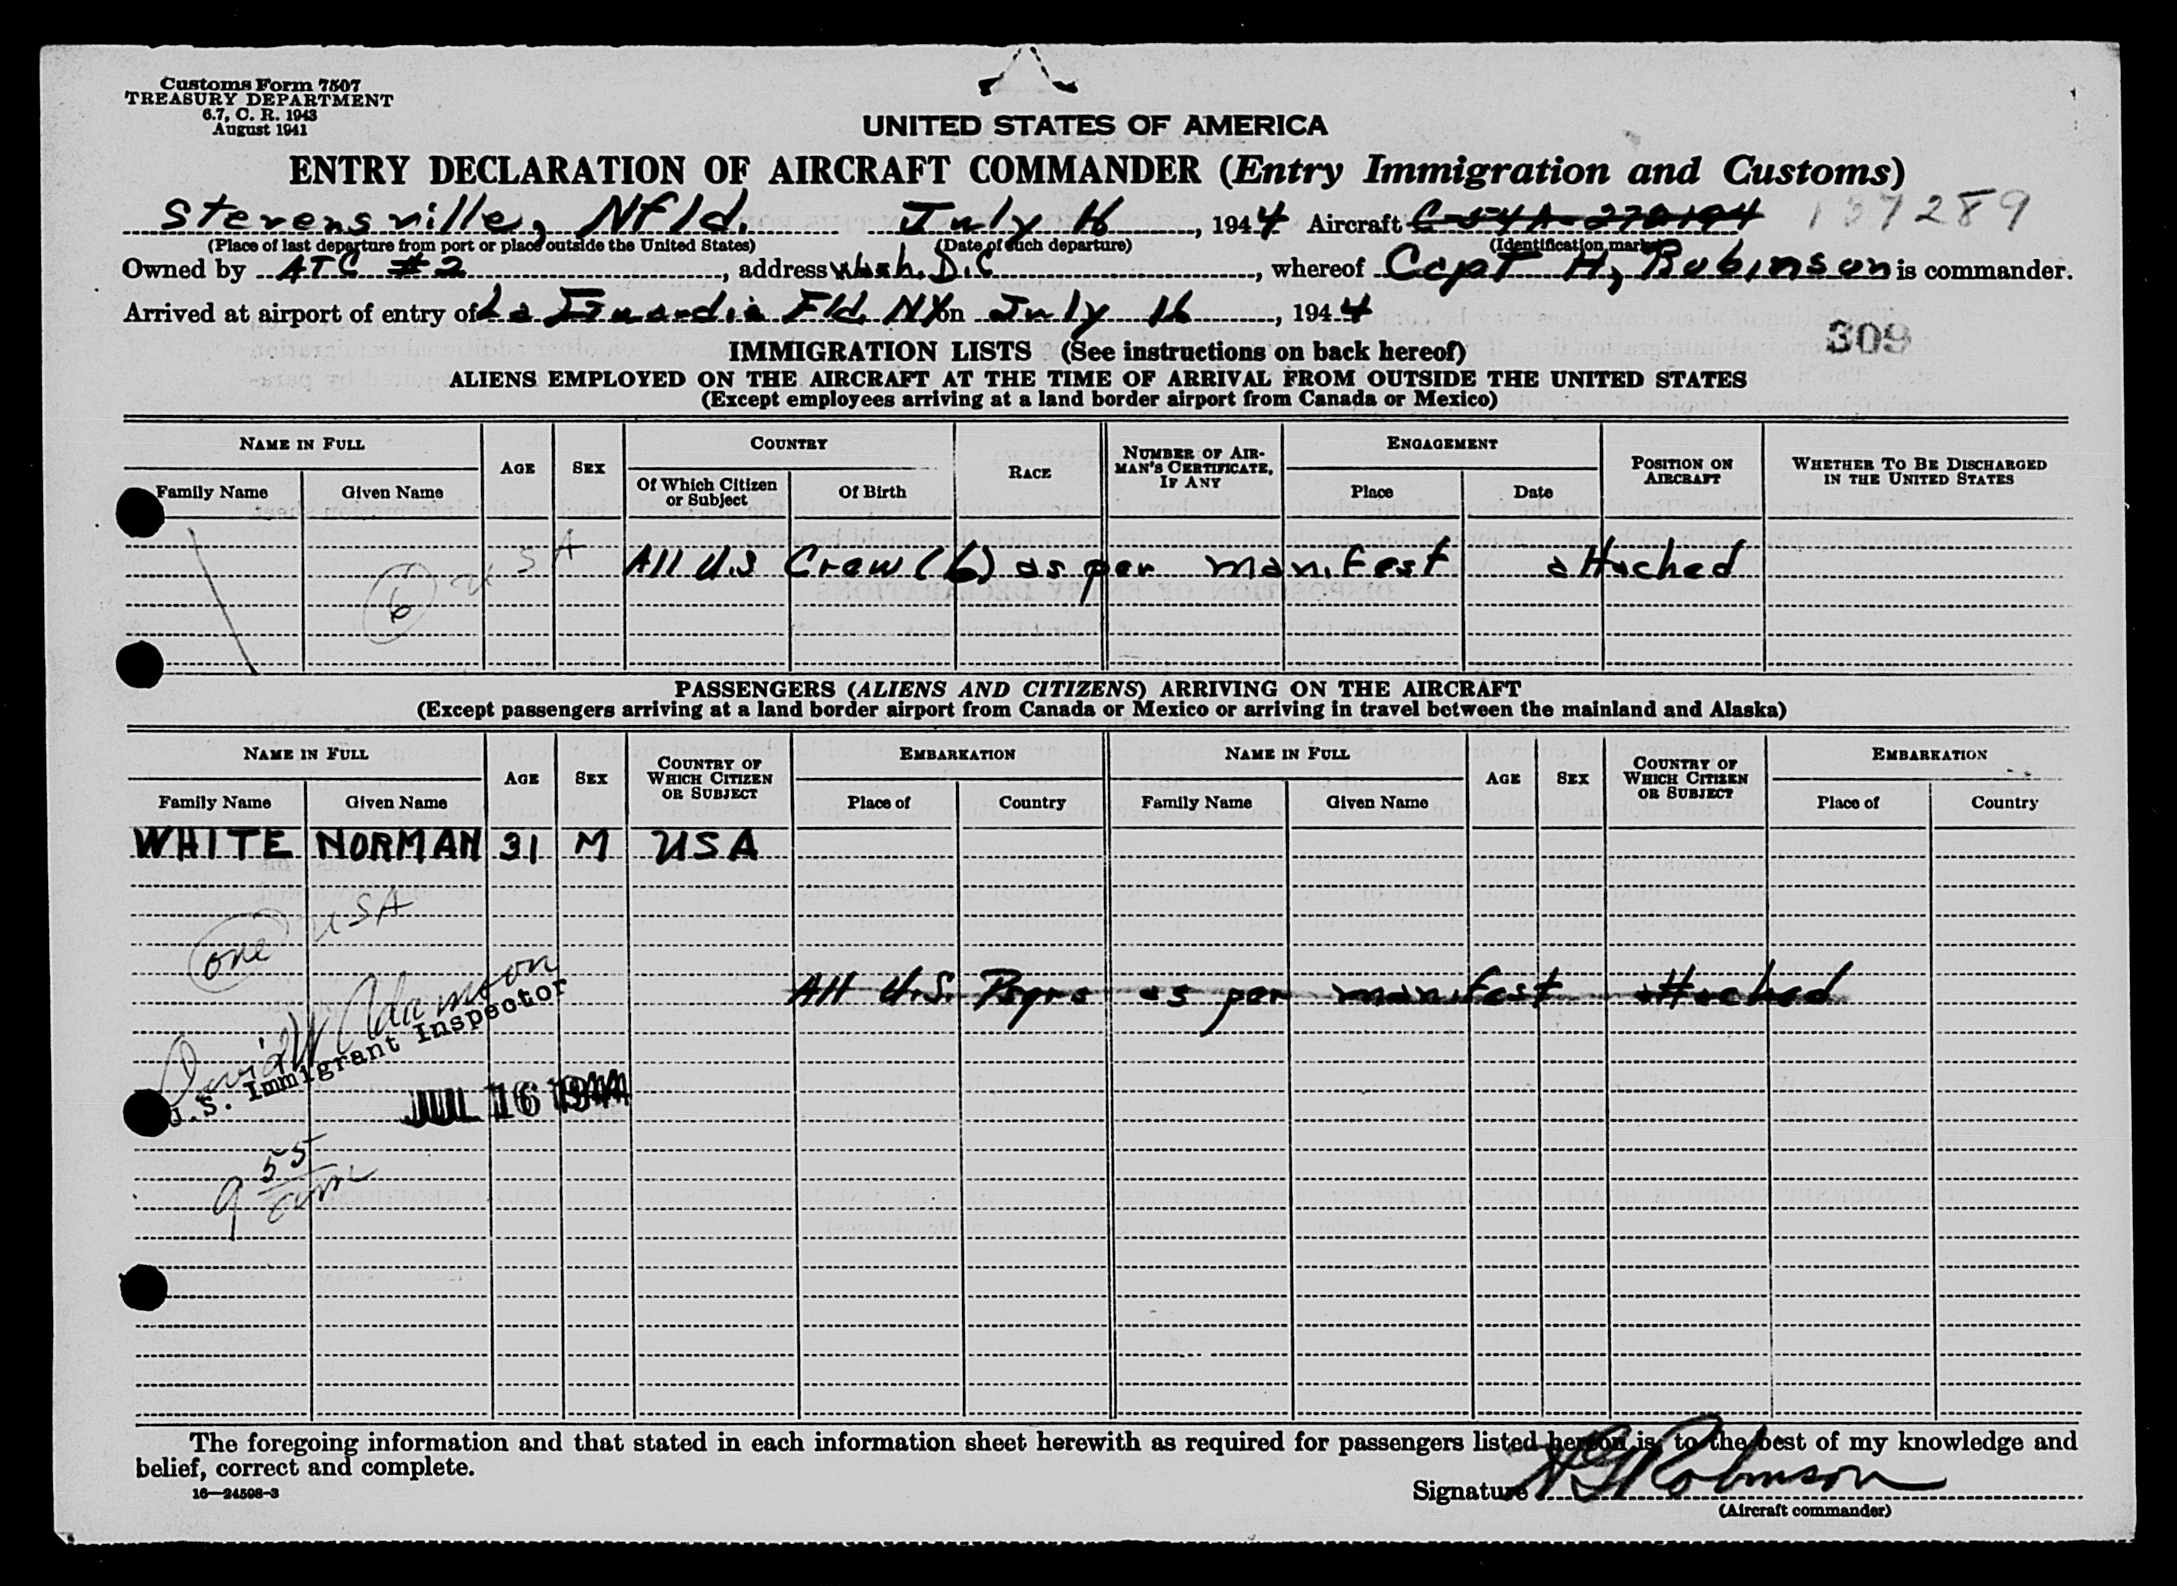 Customs Form 7507
TREASURY DEPARTMENT
6.7, C. R. 1943
August 1941
UNITED STATES OF AMERICA
ENTRY DECLARATION OF AIRCRAFT COMMANDER (Entry Immigration and Customs)
Stevensville, Nfld. July 16, 1944 Aircraft C-54A-270194 137289
(Place of last departure from port or place outside the United States) (Date of such departure) (Identification marks)
Owned by ATC #2, address Wash. D.C, whereof Capt H, Robinson is commander.
Arrived at airport of entry of La Guardia Fld, NY on July 16, 1944
309
IMMIGRATION LISTS (See instructions on back hereof)
ALIENS EMPLOYED ON THE AIRCRAFT AT THE TIME OF ARRIVAL FROM OUTSIDE THE UNITED STATES
(Except employees arriving at a land border airport from Canada or Mexico)
NAME IN FULL AGE SEX COUNTRY RACE NUMBER OF AIRMAN'S CERTIFICATE, IF ANY ENGAGEMENT POSITION ON AIRCRAFT WHETHER TO BE DISCHARGED IN THE UNITED STATES
Family Name Given Name Of Which Citizen or Subject Of Birth Place Date
6 USA All U.S Crew (6) as per manifest attached
PASSENGERS (ALIENS AND CITIZENS) ARRIVING ON THE AIRCRAFT
(Except passengers arriving at a land border airport from Canada or Mexico or arriving in travel between the mainland and Alaska)
NAME IN FULL AGE SEX COUNTRY OF WHICH CITIZEN OR SUBJECT EMBARKATION NAME IN FULL AGE SEX COUNTRY OF WHICH CITIZEN OR SUBJECT EMBARKATION
Family Name Given Name Place of Country Family Name Given Name Place of Country
WHITE NORMAN 31 M USA
one USA
All U.S. Psgrs as per manifest attached
David W Adamson
U.S. Immigrant Inspector
JUL 16 1944
9 55 am
The foregoing information and that stated in each information sheet herewith as required for passengers listed hereon is, to the best of my knowledge and
belief, correct and complete.
16—24508-3
Signature H G Robinson
(Aircraft commander)